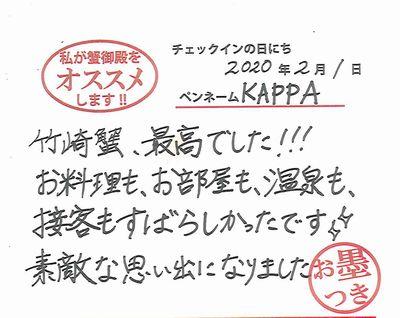 私が蟹御殿を
オススメ
します!!
チェックインの日にち
2020年2月1日
ペンネーム KAPPA
竹崎蟹、最高でした!!!
お料理も、お部屋も、温泉も、
接客もすばらしかったです
素敵な思い出になりました
お墨
つき